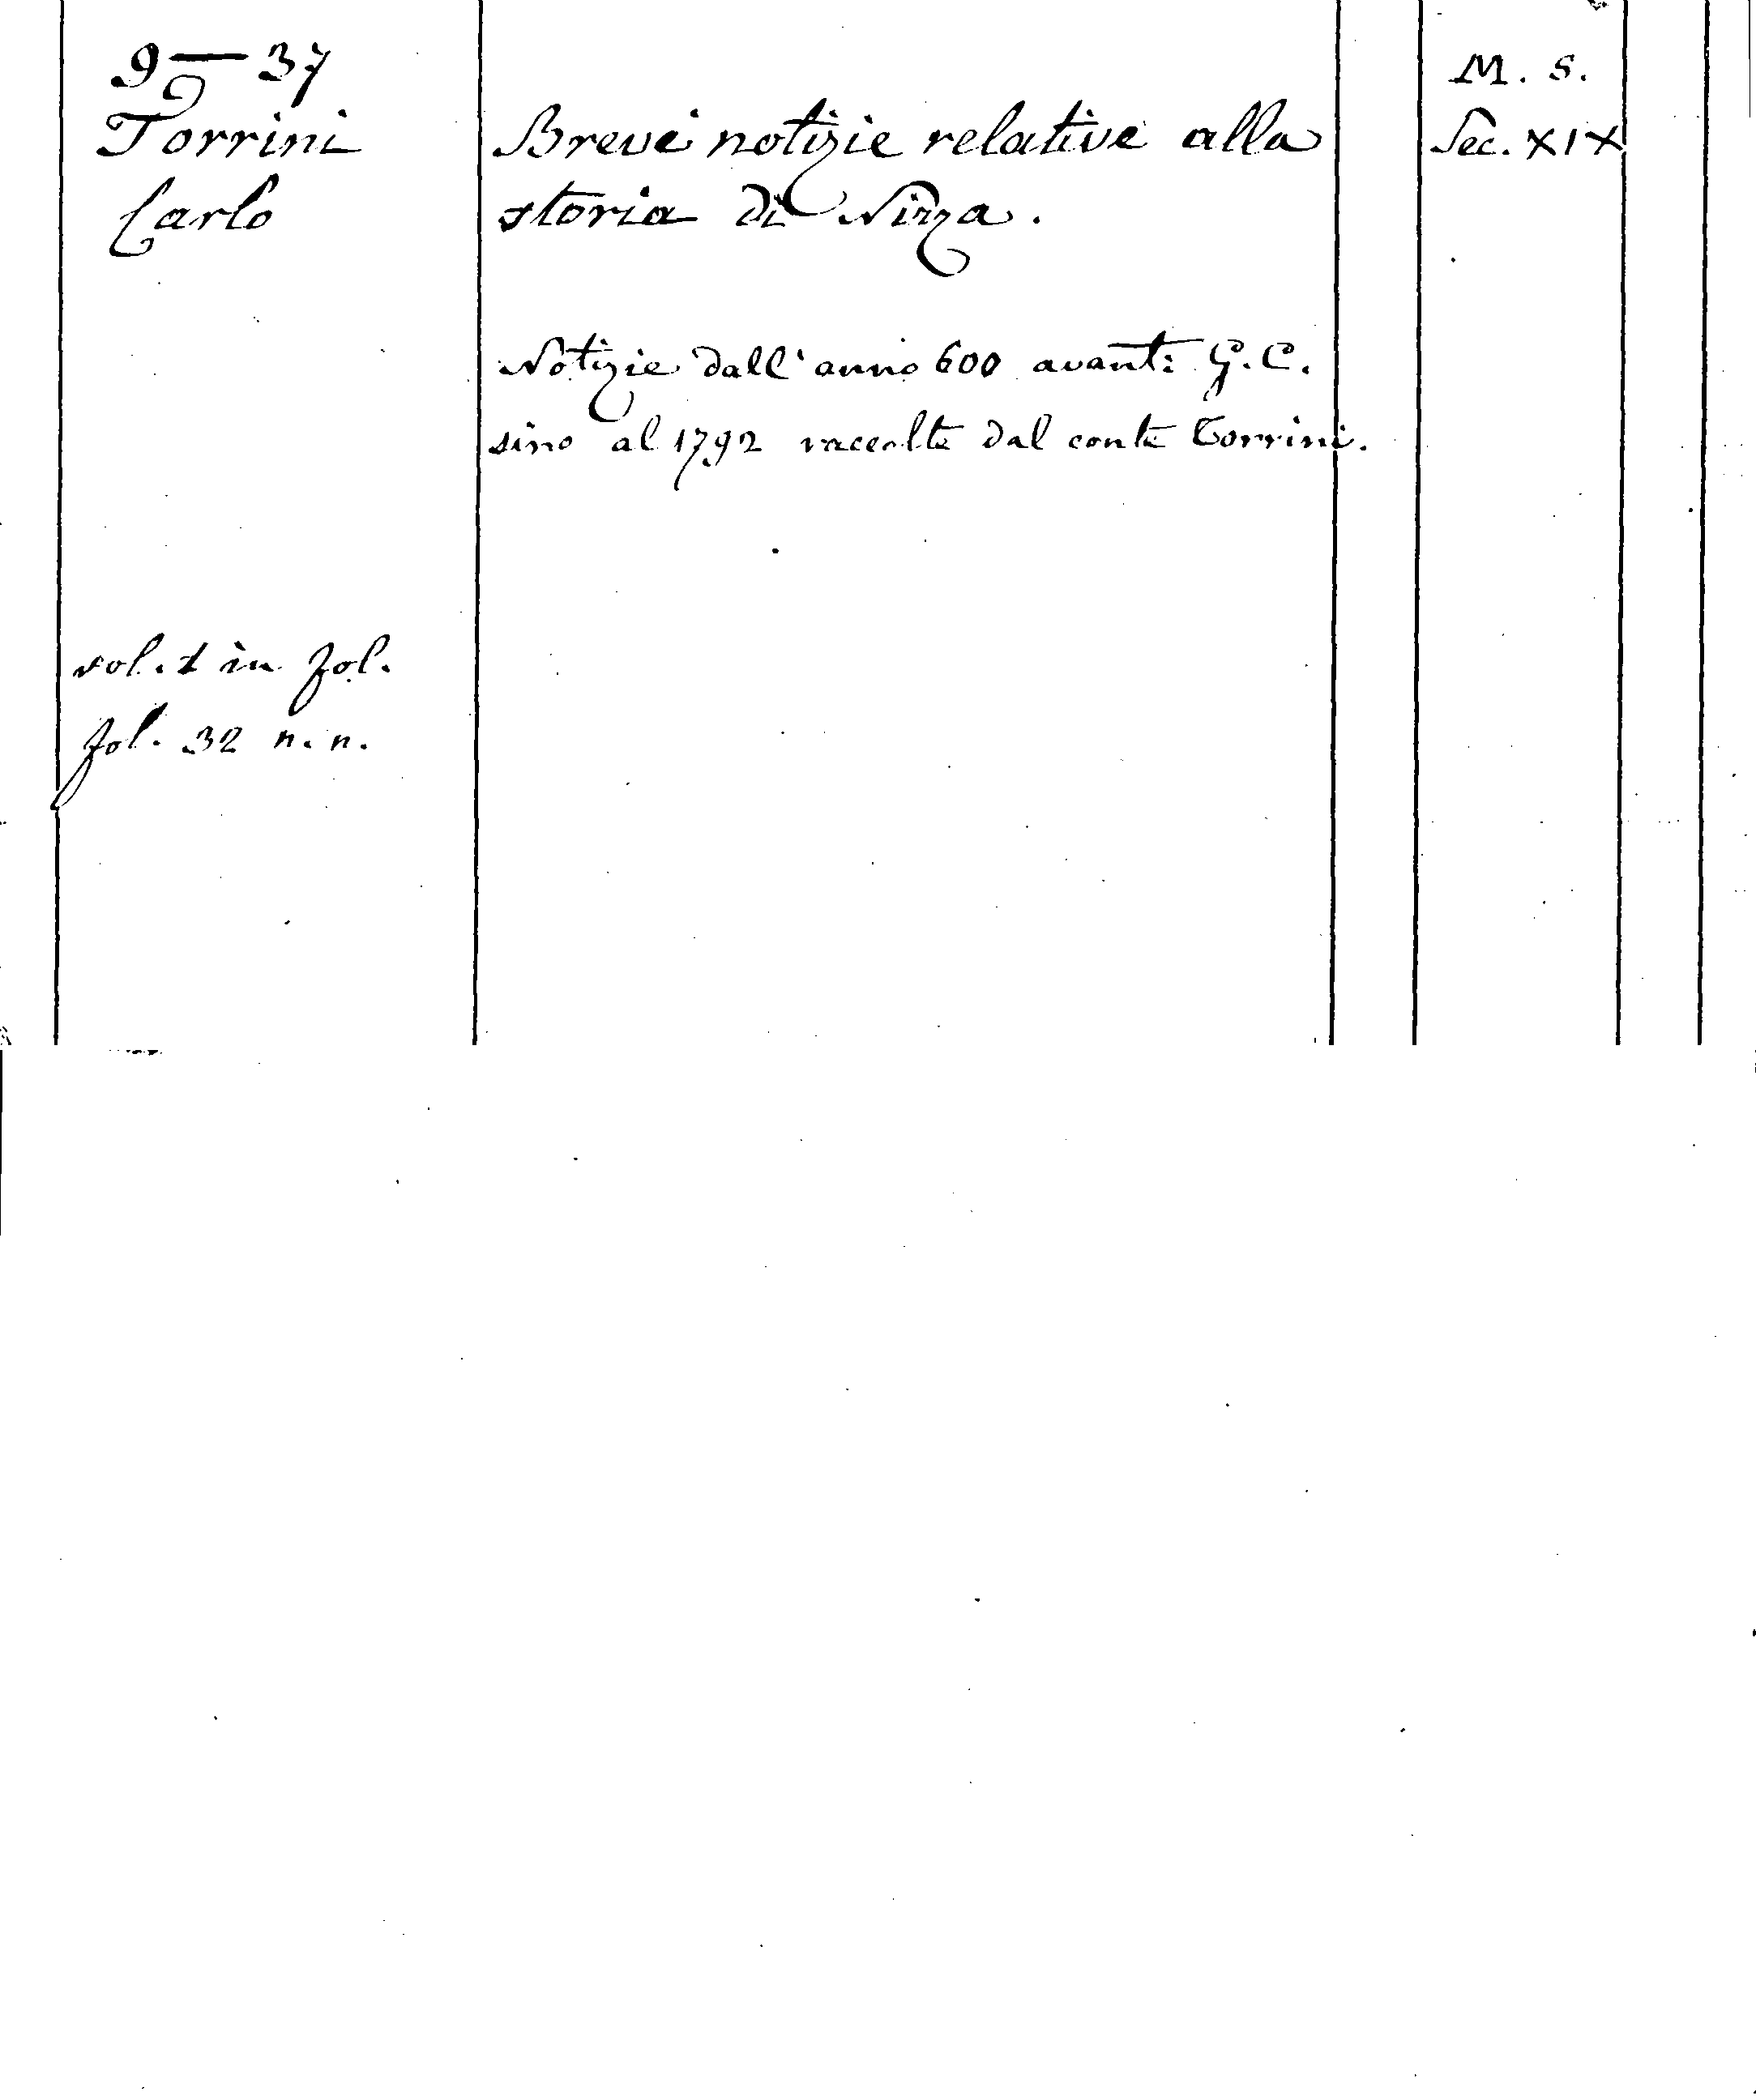 9 — 37
Torrini
Carlo
Brevi notizie relative alla
storia di Nizza.
Notizie dall'anno 600 avanti G. C.
sino al 1792 raccolte dal conte Torrini.
vol. 1 in fol.
fol. 32 n. n.
M. S.
Sec. XIX